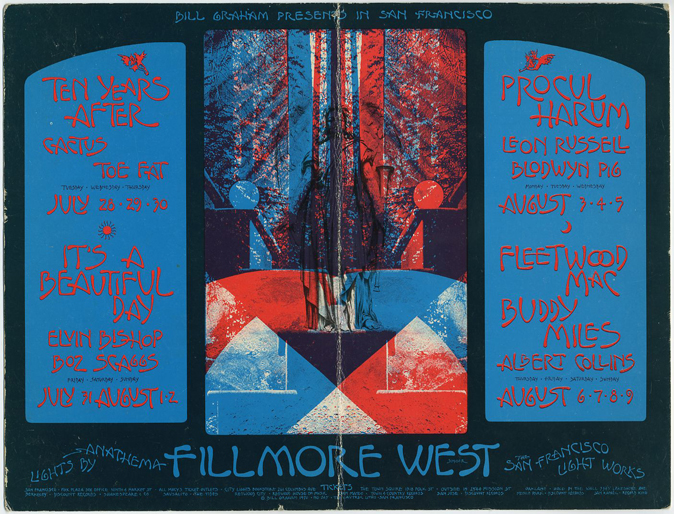 BILL GRAHAM PRESENTS IN SAN FRANCISCO
TEN YEARS
AFTER
CACTUS
TOE FAT
TUESDAY - WEDNESDAY - THURSDAY
JULY 28 - 29 - 30
IT'S A
BEAUTIFUL
DAY
ELVIN BISHOP
BOZ SCAGGS
FRIDAY - SATURDAY - SUNDAY
JULY 31 AUGUST 1-2
PROCUL
HARUM
LEON RUSSELL
BLODWYN PIG
MONDAY - TUESDAY - WEDNESDAY
AUGUST 3-4-5
FLEETWOOD
MAC
BUDDY
MILES
ALBERT COLLINS
THURSDAY - FRIDAY - SATURDAY - SUNDAY
AUGUST 6-7-8-9
LIGHTS BY
ANATHEMA
FILLMORE WEST
THE SAN FRANCISCO
LIGHT WORKS
TICKETS